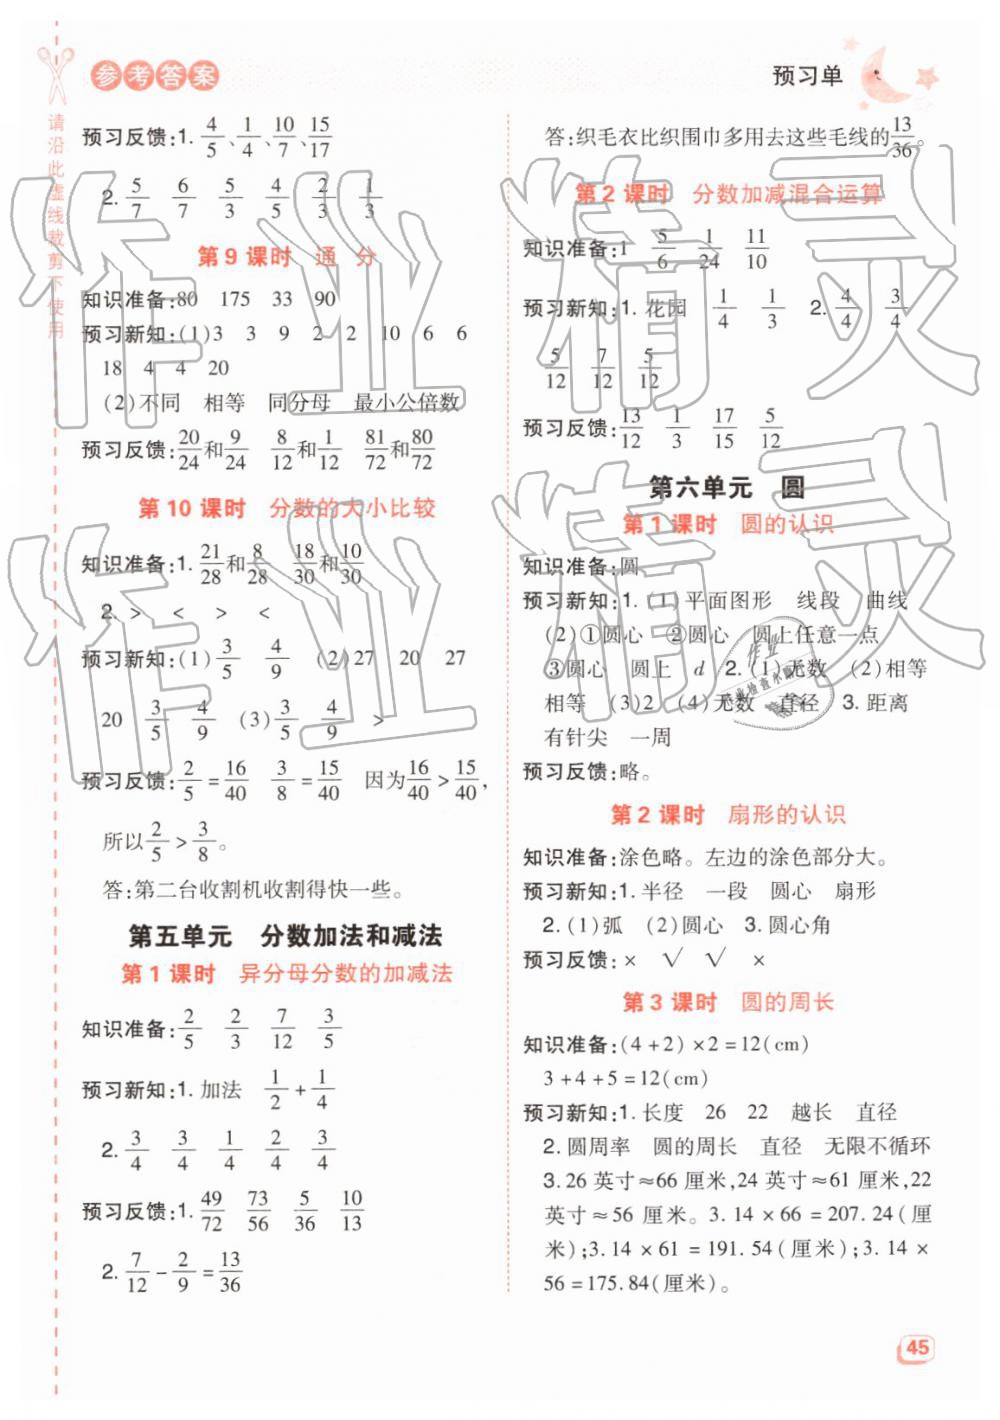 参考答案
预习单
请沿此虚线裁剪不使用
预习反馈:1. 4/5、1/4、10/7、15/17
2. 5/7 6/7 5/3 4/5 2/3 1/3
第9课时 通 分
知识准备:80 175 33 90
预习新知:(1)3 3 9 2 2 10 6 6
18 4 4 20
(2)不同 相等 同分母 最小公倍数
预习反馈:20/24和9/24 8/12和1/12 81/72和80/72
第10课时 分数的大小比较
知识准备:1. 21/28和8/28 18/30和10/30
2. > < > <
预习新知:(1)3/5 4/9 (2)27 20 27
20 3/5 4/9 (3)3/5 4/9 >
预习反馈:2/5=16/40 3/8=15/40 因为16/40>15/40,
所以2/5>3/8。
答:第二台收割机收割得快一些。
第五单元 分数加法和减法
第1课时 异分母分数的加减法
知识准备:2/5 2/3 7/12 3/5
预习新知:1. 加法 1/2+1/4
2. 3/4 3/4 1/4 2/4 3/4
预习反馈:1. 49/72 73/56 5/36 10/13
2. 7/12-2/9=13/36
答:织毛衣比织围巾多用去这些毛线的13/36。
第2课时 分数加减混合运算
知识准备:1 5/6 1/24 11/10
预习新知:1. 花园 1/4 1/3 2. 4/4 3/4
5/12 7/12 5/12
预习反馈:13/12 1/3 17/15 5/12
第六单元 圆
第1课时 圆的认识
知识准备:圆
预习新知:1. (1)平面图形 线段 曲线
(2)①圆心 ②圆心 圆上任意一点
③圆心 圆上 d 2. (1)无数 (2)相等
相等 (3)2 (4)无数 直径 3. 距离
有针尖 一周
预习反馈:略。
第2课时 扇形的认识
知识准备:涂色略。左边的涂色部分大。
预习新知:1. 半径 一段 圆心 扇形
2. (1)弧 (2)圆心 3. 圆心角
预习反馈:× √ √ ×
第3课时 圆的周长
知识准备:(4+2)×2=12(cm)
3+4+5=12(cm)
预习新知:1. 长度 26 22 越长 直径
2. 圆周率 圆的周长 直径 无限不循环
3. 26 英寸≈66 厘米,24 英寸≈61 厘米,22
英寸≈56 厘米。3.14×66=207.24(厘
米);3.14×61=191.54(厘米);3.14×
56=175.84(厘米)。
45
作业精灵
作业精灵